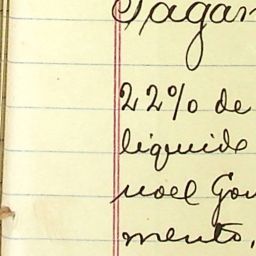 Pagam
22% de
liquido
noel Gou
mento,